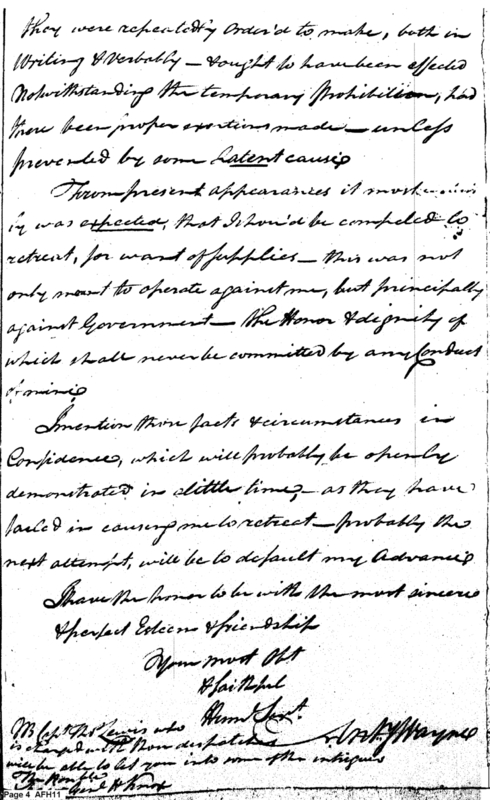 they were repeatedly order'd to make, both in
Writing & Verbally — & ought to have been effected
Notwithstanding the temporary Prohibition, had
there been proper exertions made — unless
prevented by some Latent cause
From present appearances it most
ly was expected, that I shou'd be compeled to
retreat, for want of supplies — this was not
only meant to operate against me, but principally
against Government — the Honor & dignity of
which shall never be committed by any Conduct
of mine
I mention those facts & circumstances in
Confidence, which will probably be openly
demonstrated in a little time, — as they have
failed in causing me to retreat — probably the
next attempt, will be to default my Advance
I have the honor to be with the most sincere
& perfect Esteem & friendship
Your most Obt
& faithful
Huml Servt.
Anty Wayne
NB Capt. Thos Lewis who
is charged with those dispatches
will be able to let you into some of the intrigues
The Honble
Genl H Knox
Page 4 AFH11